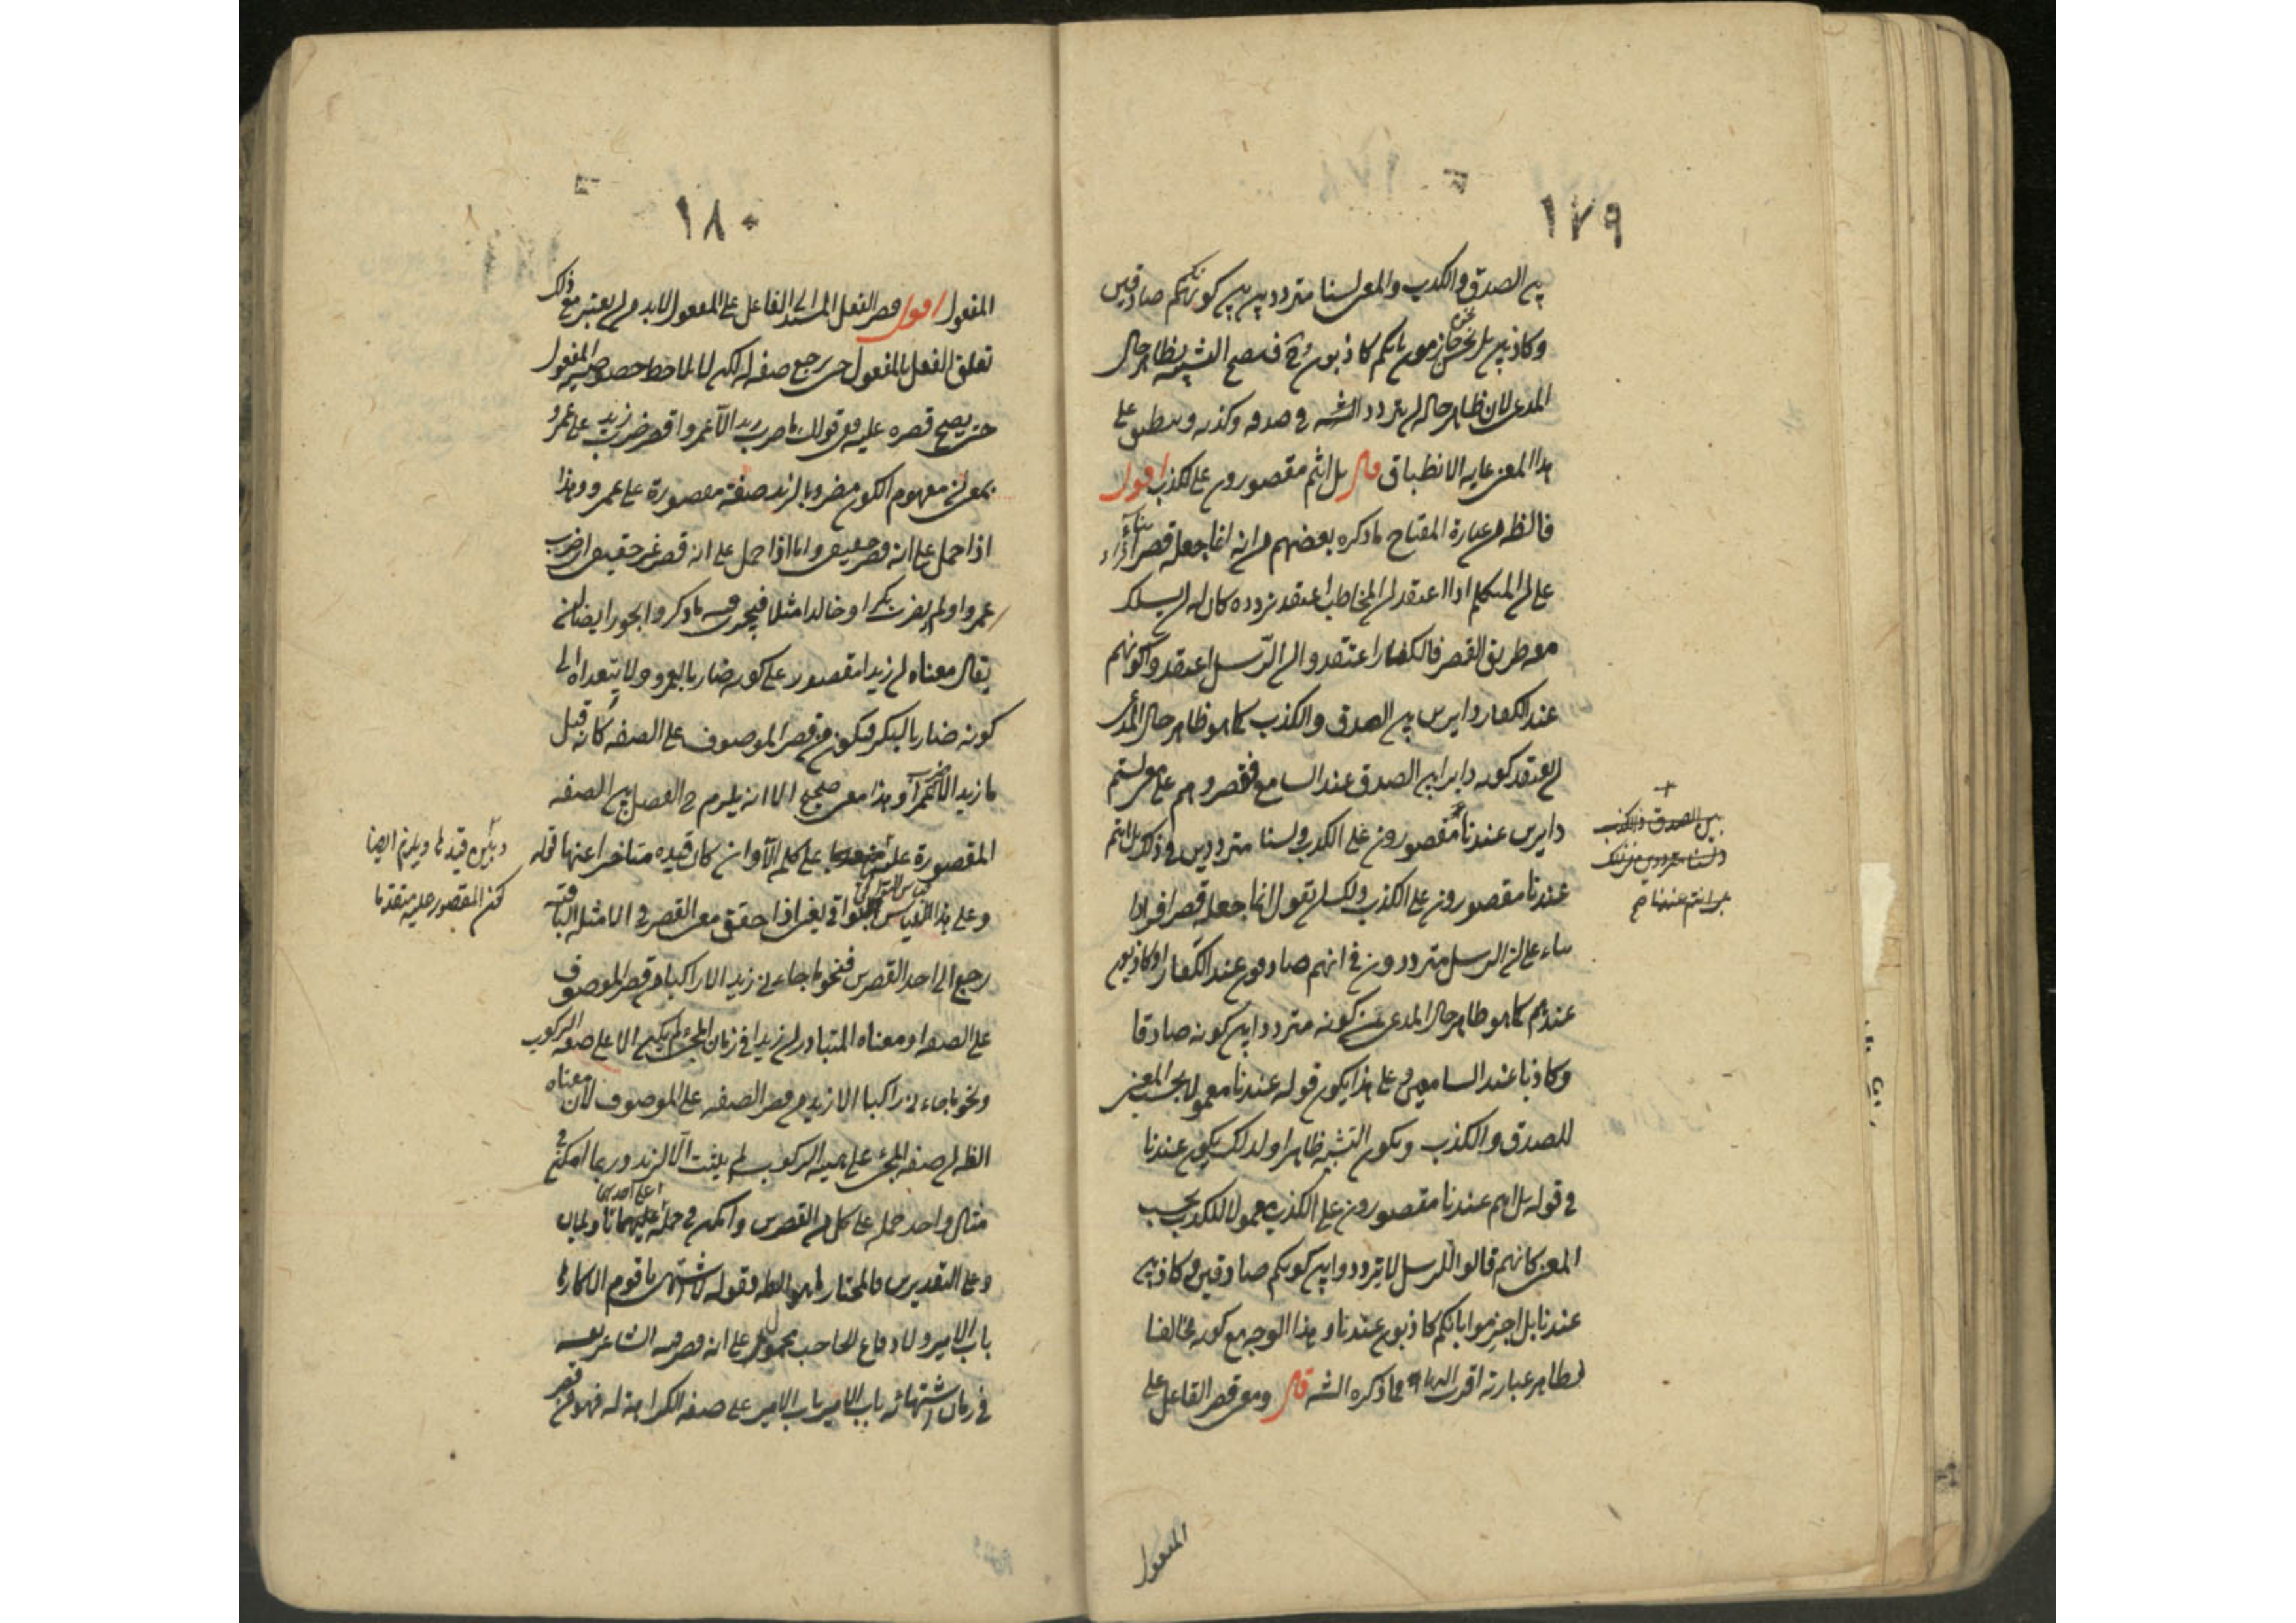 ١٧٩
بين الصدق والكذب والمعنى لسنا مترددين بين كونكم صادقين
وكاذبين بل نحن جازمون بانكم كاذبون فح فيصح التشبيه بظاهر حال
المدعى لان ظاهر حاله ان يتردد الشبه فى صدقه وكذبه وينطبق على
هذا المعنى غاية الانطباق قال بل انتم مقصورون على الكذب اقول
فالظ من عبارة المفتاح ما ذكره بعضهم من انه انما جعله قصر افراد بناء
على ان المتكلم اذا اعتقد ان المخاطب اعتقد تردده كان له ان يسلك
معه طريق القصر فالكفار اعتقدوا ان الرسل اعتقدوا كونهم
عند الكفار دايرين بين الصدق والكذب كما هو ظاهر حال المدعى
ان يعتقد كونه دايرا بين الصدق عند السامع فقصروهم على معنى لستم
دايرين عندنا مقصورون على الكذب ولسنا مترددين فى ذلك بل انتم
عندنا مقصورون على الكذب ولك ان تقول انما جعله قصر افرادا
بناء على ان الرسل مترددون فى انهم صادقون عند الكفار او كاذبون
عندهم كما هو ظاهر حال المدعى من كونه مترددا بين كونه صادقا
وكاذبا عند السامعين وعلى هذا يكون قوله عندنا معمولا بحسب المعنى
للصدق والكذب ويكون التشبيه ظاهرا ولذلك يكون عندنا
فى قوله بل انتم عندنا مقصورون على الكذب معمولا للكذب بحسب
المعنى كانهم قالوا للرسل لا تترددوا بين كونكم صادقين وكاذبين
عندنا بل اجزموا بانكم كاذبون عندنا وهذا الوجه مع كونه مخالفا
لظاهر عبارته اقرب مما ذكره الشه قال ومعنى قصر الفاعل على
المفعول
بين الصدق والكذب
ولسنا مترددين فى ذلك
بل انتم عندنا صح
١٨٠
المفعول اقول قصر الفعل المسند الى الفاعل على المفعول لابد وان يعتبر مع ذلك
تعلق الفعل بالمفعول حتى يرجع صفة له لكن لا يلاحظ خصوصية المفعول
حتى يصح قصره عليه ففى قولك ما ضرب زيد الا عمروا قصر ضرب زيد على عمرو
بمعنى ان مفهوم الكون مضروبا لزيد صفة مقصورة على عمرو وهذا
اذا حمل على انه قصر حقيقى واما اذا حمل على انه قصر غير حقيقى اى ضرب
عمروا ولم يضرب بكرا وخالدا مثلا فيجرى فيه ما ذكر ويجوز ايضا ان
يقال معناه ان زيدا مقصور على كونه ضاربا لعمرو ولا يتعداه الى
كونه ضاربا لبكر فيكون من قصر الموصوف على الصفة كانه قيل
ما زيد الا ضرب عمرا وهذا معنى صحيح الا انه يلزم ح الفصل بين الصفة
المقصورة عليه على كلم الا وان كان قيده متاخرا عنها قوله
وعلى هذا القياس البواقى يعنى اذا حقق معنى القصر فى الامثلة الباقية
رجع الى احد القصرين فنحو ما جاءنى زيد الا راكبا من قصر الموصوف
على الصفة ومعناه المتبادر ان زيدا فى زمان المجئ لم يكن الا على صفة الركوب
ونحو ما جاءنى راكبا الا زيد من قصر الصفة على الموصوف لان معناه
الظ ان صفة المجئ على هيئة الركوب لم يثبت الا لزيد وربما امكن فى
مثال واحد حمله على كل من القصرين وامكن فى حمله على احدهما تاويلان
وعلى التقديرين فالمختار ما هو الظ فقوله لا اشتهى يا قوم الا كارها
باب الامير ولا دفاع الحاجب محمول على انه قصر فيه الشاعر نفسه
فى زمان اشتهائه باب الامير على صفة الكراهة له فهو من قصر
ويلزم ايضا
كون المقصور عليه متقدما